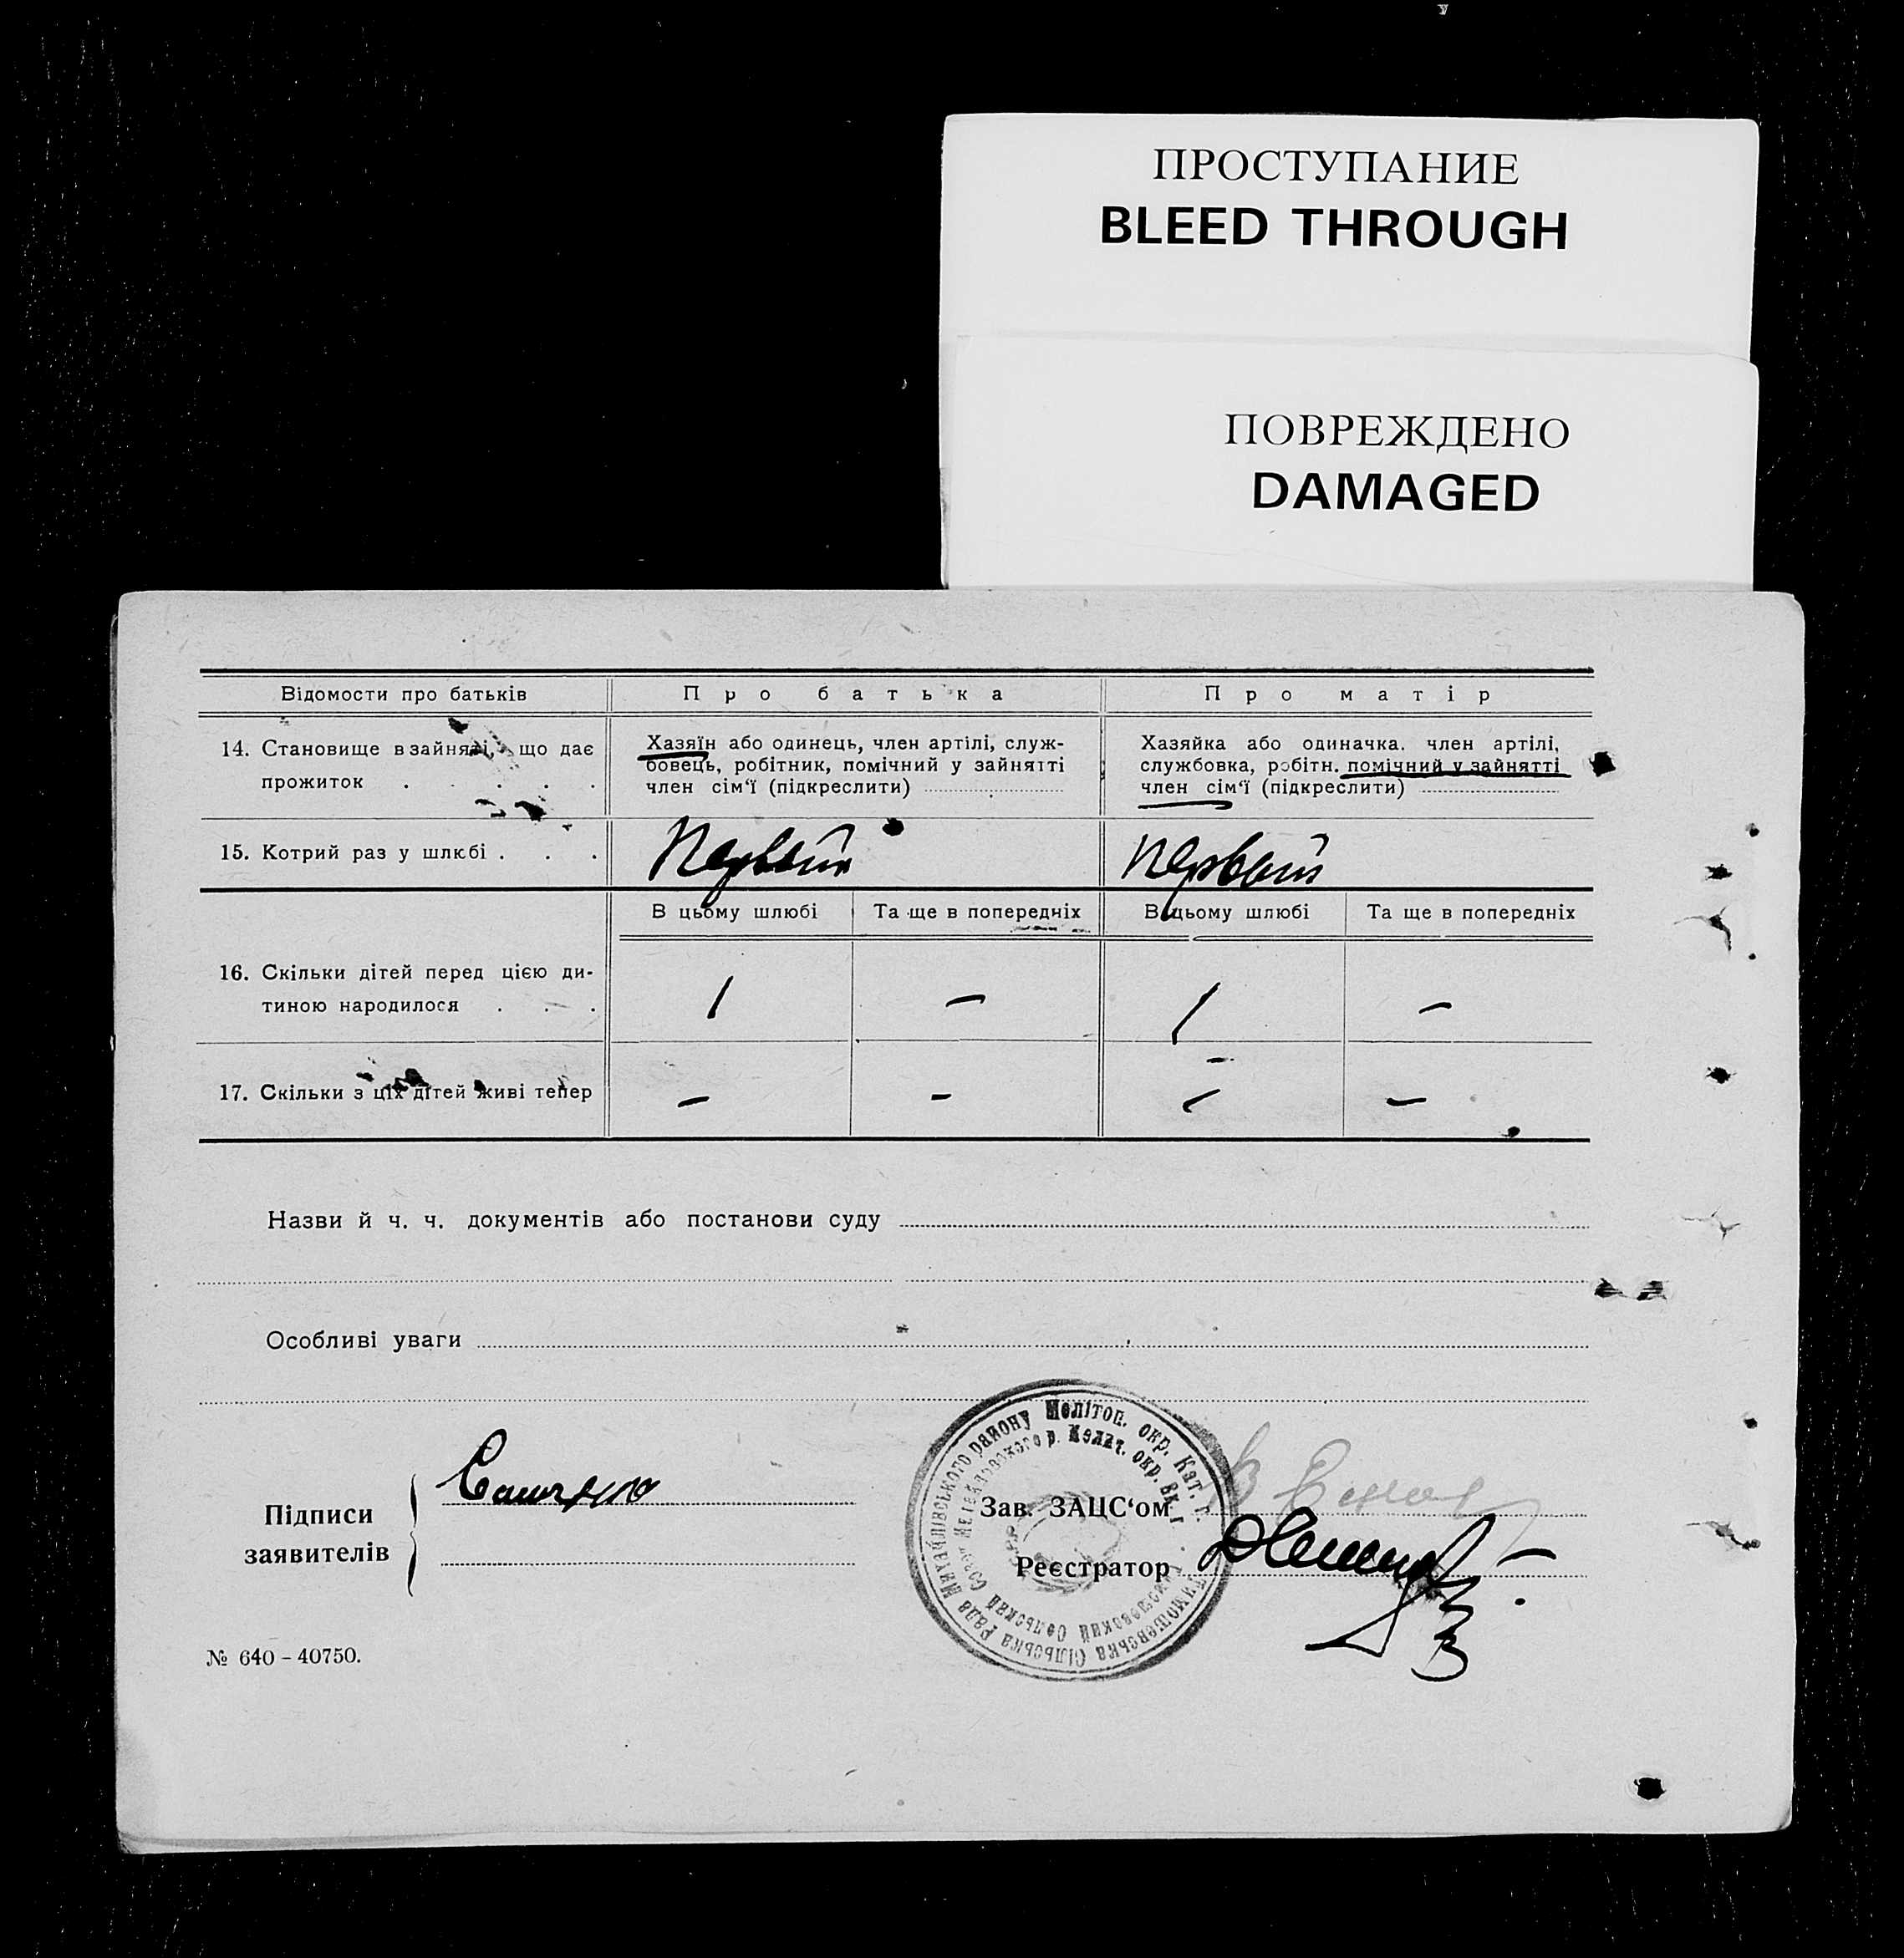 ПРОСТУПАНИЕ
BLEED THROUGH
ПОВРЕЖДЕНО
DAMAGED
Відомости про батьків
Про батька
Про матір
14. Становище в зайнятті, що дає
прожиток . . . . .
Хазяїн або одинець, член артілі, служ-
бовець, робітник, помічний у зайнятті
член сім‘ї (підкреслити)
Хазяйка або одиначка. член артілі,
службовка, робітн. помічний у зайнятті
член сім‘ї (підкреслити)
15. Котрий раз у шлюбі . . .
Первый
первый
В цьому шлюбі
Та ще в попередніх
В цьому шлюбі
Та ще в попередніх
16. Скільки дітей перед цією ди-
тиною народилося . . .
1
–
1
–
17. Скільки з ціх дітей живі тепер
–
–
–
–
Назви й ч. ч. документів або постанови суду
Особливі уваги
Підписи
заявителів
Зав. ЗАЦС‘ом
Реєстратор
Тимошевська Сільська Рада Михайлівського району Меліт��п. окр. Кат. г.
№ 640 – 40750.